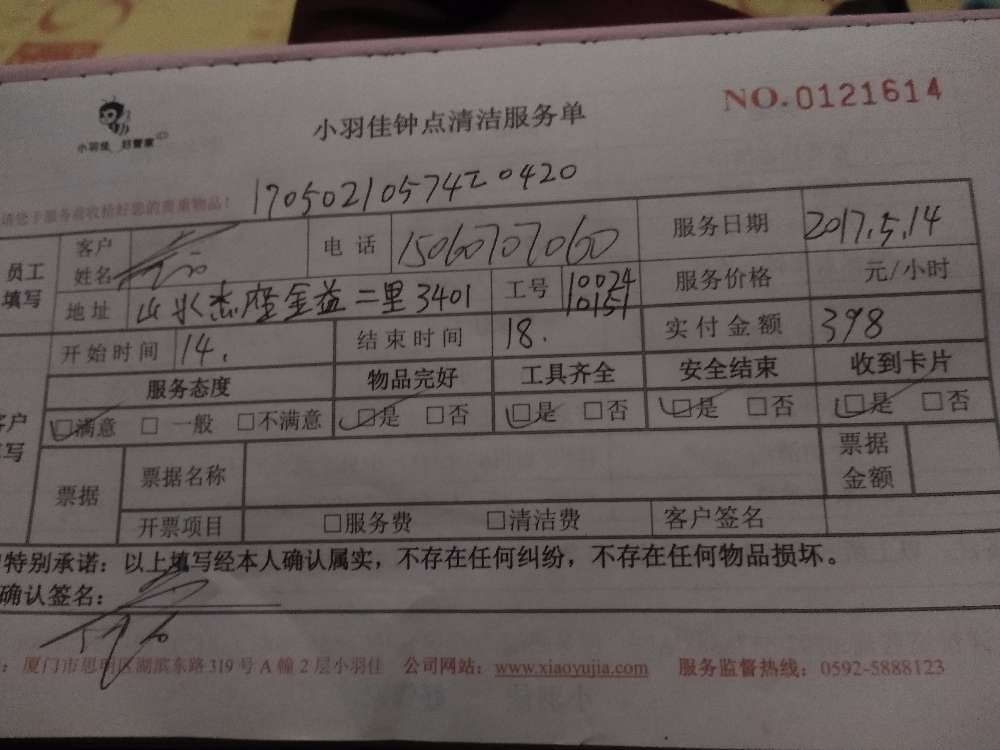 NO.0121614
小羽佳 好管家
小羽佳钟点清洁服务单
请您于服务前收拾好您的贵重物品!
170502105742 0420
员工填写 客户姓名 电话 15060707060 服务日期 2017.5.14
地址 山水杰座金益二里3401 工号 10024 10151 服务价格 元/小时
开始时间 14. 结束时间 18. 实付金额 398
服务态度 物品完好 工具齐全 安全结束 收到卡片
客户填写 ☑满意 □ 一般 □不满意 ☑是 □否 ☑是 □否 ☑是 □否 ☑是 □否
票据 票据名称 票据金额
开票项目 □服务费 □清洁费 客户签名
特别承诺:以上填写经本人确认属实,不存在任何纠纷,不存在任何物品损坏。
确认签名:
厦门市思明区湖滨东路319号A幢2层小羽佳 公司网站:www.xiaoyujia.com 服务监督热线:0592-5888123